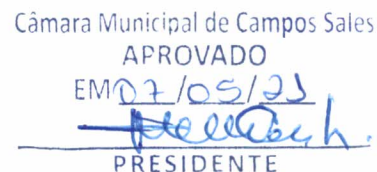 Câmara Municipal de Campos Sales
APROVADO
EM 07/05/21
PRESIDENTE